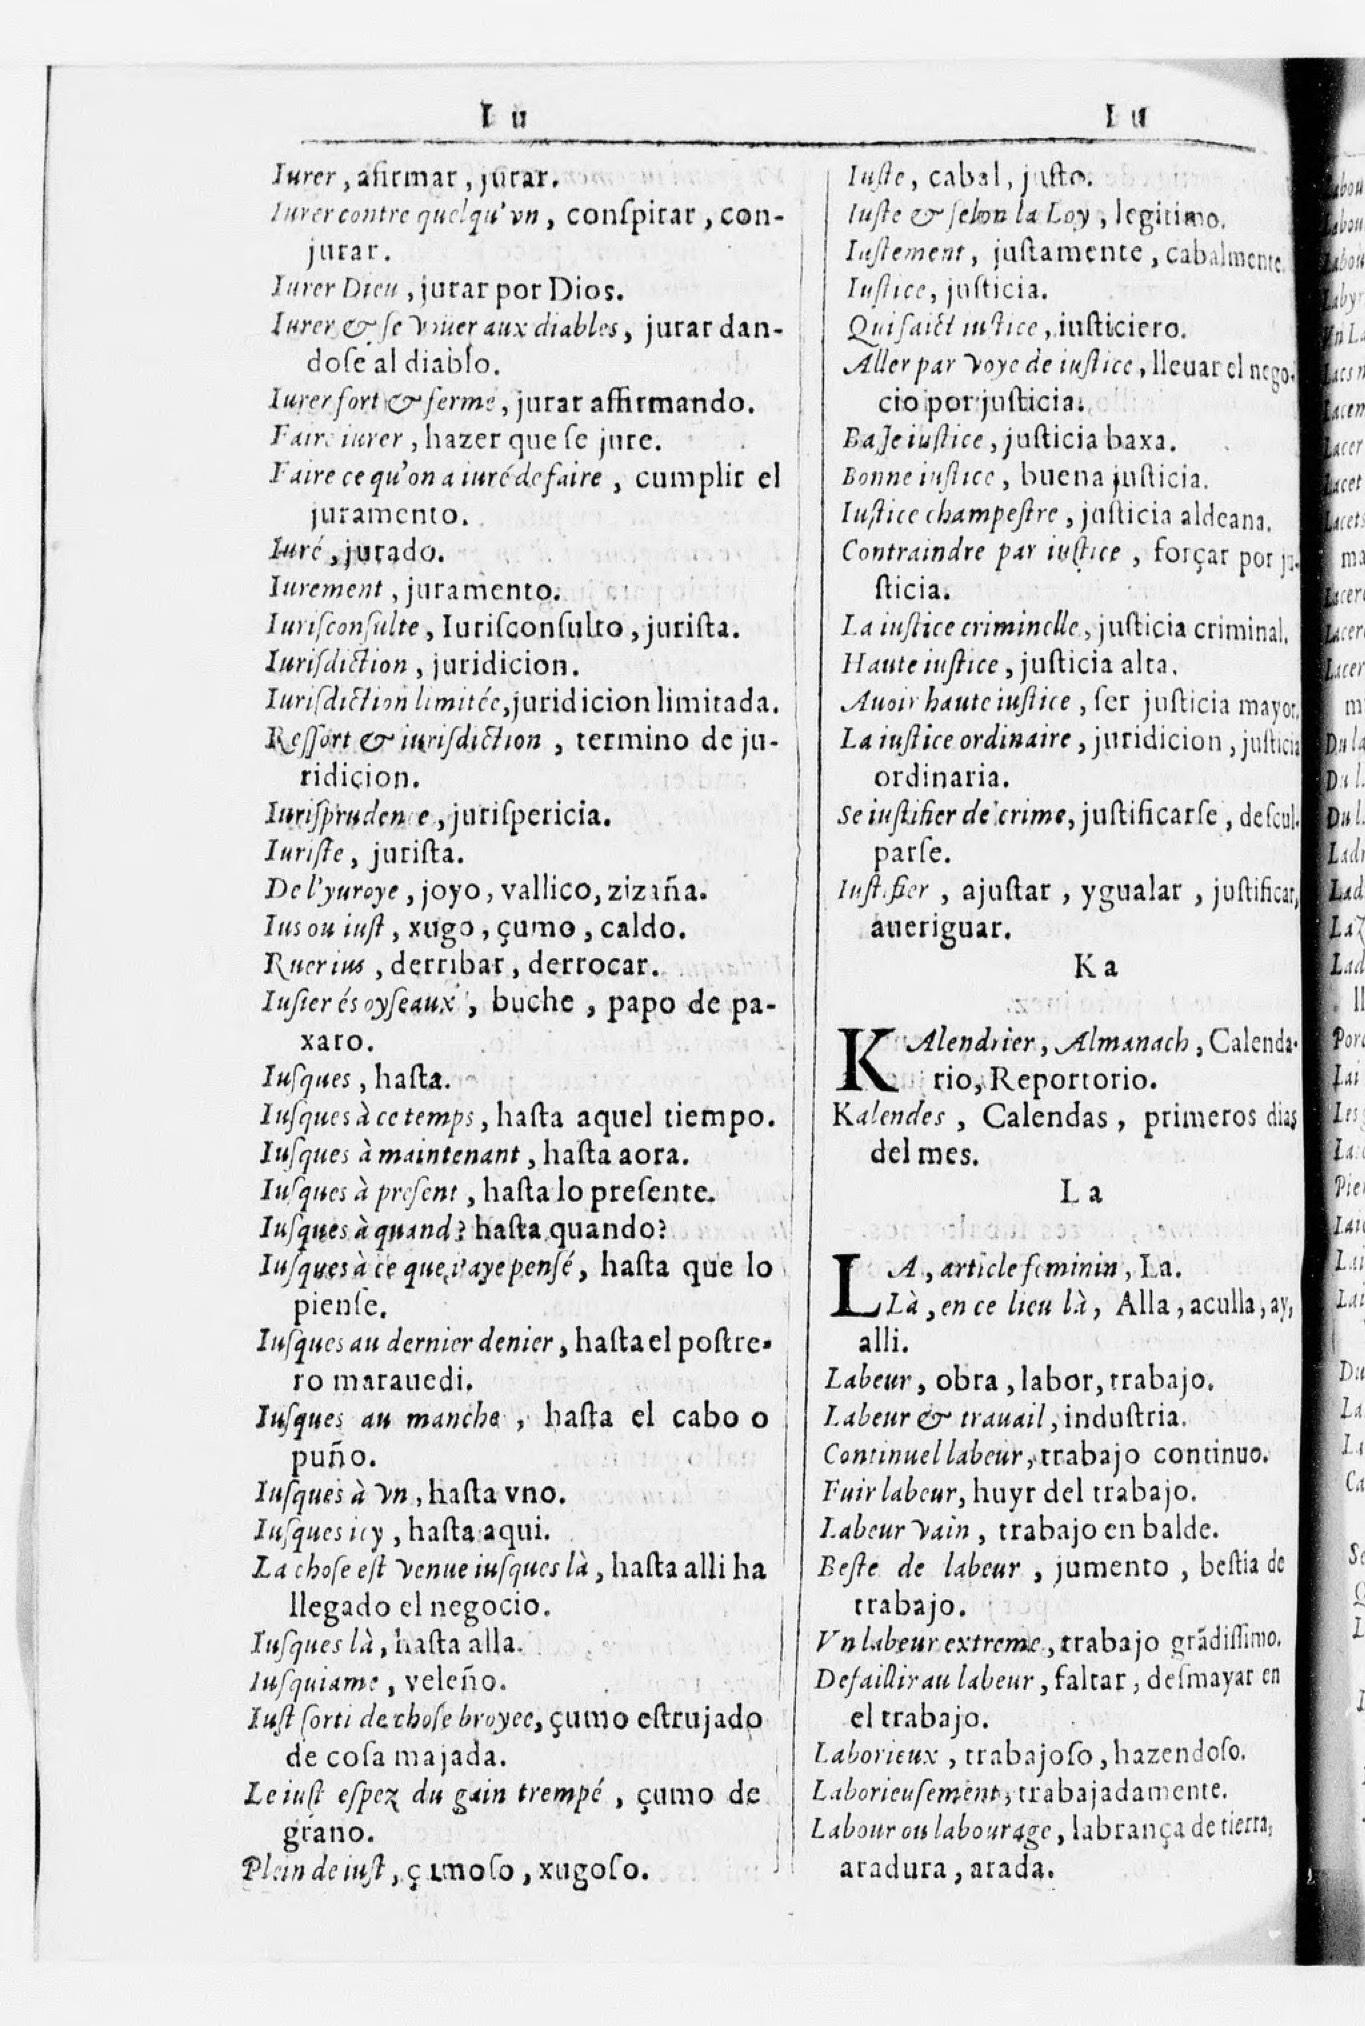 I u
Iurer, afirmar, jurar.
Iurer contre quelqu'vn, conſpirar, con-
jurar.
Iurer Dieu, jurar por Dios.
Iurer & ſe voüer aux diables, jurar dan-
doſe al diablo.
Iurer fort & ferme, jurar affirmando.
Faire iurer, hazer que ſe jure.
Faire ce qu'on a iuré de faire, cumplir el
juramento.
Iuré, jurado.
Iurement, juramento.
Iuriſconſulte, Iuriſconſulto, juriſta.
Iuriſdiction, juridicion.
Iuriſdiction limitée, juridicion limitada.
Reſſort & iuriſdiction, termino de ju-
ridicion.
Iuriſprudence, juriſpericia.
Iuriſte, juriſta.
De l'yuroye, joyo, vallico, zizaña.
Ius ou iuſt, xugo, çumo, caldo.
Ruer ius, derribar, derrocar.
Iuſier és oyſeaux, buche, papo de pa-
xaro.
Iuſques, haſta.
Iuſques à ce temps, haſta aquel tiempo.
Iuſques à maintenant, haſta aora.
Iuſques à preſent, haſta lo preſente.
Iuſques à quand? haſta quando?
Iuſques à ce que i'aye penſé, haſta que lo
pienſe.
Iuſques au dernier denier, haſta el poſtre-
ro marauedi.
Iuſques au manche, haſta el cabo o
puño.
Iuſques à vn, haſta vno.
Iuſques icy, haſta aqui.
La choſe eſt venue iuſques là, haſta alli ha
llegado el negocio.
Iuſques là, haſta alla.
Iuſquiame, veleño.
Iuſt ſorti de choſe broyee, çumo eſtrujado
de coſa majada.
Le iuſt eſpez du gain trempé, çumo de
grano.
Plein de iuſt, çumoſo, xugoſo.
I u
Iuſte, cabal, juſto.
Iuſte & ſelon la Loy, legitimo.
Iuſtement, juſtamente, cabalmente.
Iuſtice, juſticia.
Qui faict iuſtice, iuſticiero.
Aller par voye de iuſtice, lleuar el nego-
cio por juſticia.
Baſſe iuſtice, juſticia baxa.
Bonne iuſtice, buena juſticia.
Iuſtice champeſtre, juſticia aldeana.
Contraindre par iuſtice, forçar por ju-
ſticia.
La iuſtice criminelle, juſticia criminal.
Haute iuſtice, juſticia alta.
Auoir haute iuſtice, ſer juſticia mayor.
La iuſtice ordinaire, juridicion, juſticia
ordinaria.
Se iuſtifier de crime, juſtificarſe, deſcul-
parſe.
Iuſtifier, ajuſtar, ygualar, juſtificar,
aueriguar.
K a
KAlendrier, Almanach, Calenda-
rio, Reportorio.
Kalendes, Calendas, primeros dias
del mes.
L a
LA, article feminin, La.
Là, en ce lieu là, Alla, aculla, ay,
alli.
Labeur, obra, labor, trabajo.
Labeur & trauail, induſtria.
Continuel labeur, trabajo continuo.
Fuir labeur, huyr del trabajo.
Labeur vain, trabajo en balde.
Beſte de labeur, jumento, beſtia de
trabajo.
Vn labeur extreme, trabajo grãdiſſimo.
Defaillir au labeur, faltar, deſmayar en
el trabajo.
Laborieux, trabajoſo, hazendoſo.
Laborieuſement, trabajadamente.
Labour ou labourage, labrança de tierra,
aradura, arada.